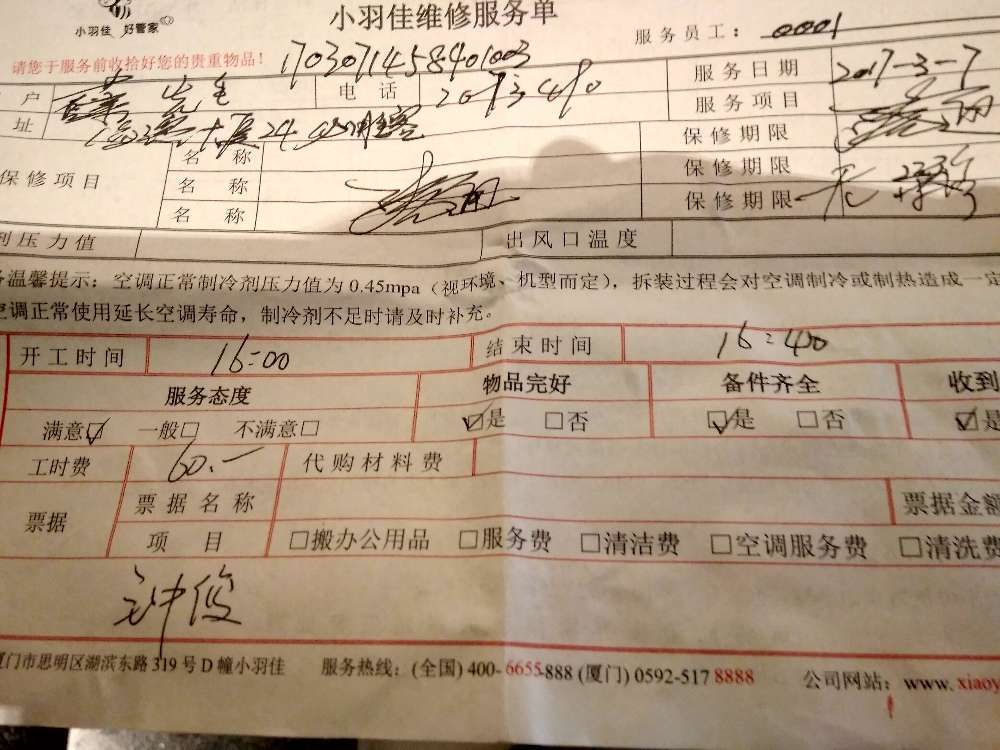 小羽佳 好管家
小羽佳维修服务单
服务员工：0001
请您于服务前收拾好您的贵重物品！
1703071458401003
户 先生 电话
服务日期 2017-3-7
址 大厦24
服务项目
保修项目
名称 保修期限
名称 保修期限
名称 保修期限 无
剂压力值 出风口温度
务温馨提示：空调正常制冷剂压力值为 0.45mpa（视环境、机型而定），拆装过程会对空调制冷或制热造成一定
空调正常使用延长空调寿命，制冷剂不足时请及时补充。
开工时间 16:00 结束时间 16:40
服务态度 物品完好 备件齐全 收到
满意☑ 一般□ 不满意□ ☑是 □否 ☑是 □否 ☑是
工时费 60.— 代购材料费
票据 票据名称 票据金额
项目 □搬办公用品 □服务费 □清洁费 □空调服务费 □清洗费
钟俊
厦门市思明区湖滨东路 319 号 D 幢小羽佳 服务热线：(全国) 400-6655-888 (厦门) 0592-517 8888 公司网站：www.xiaoy